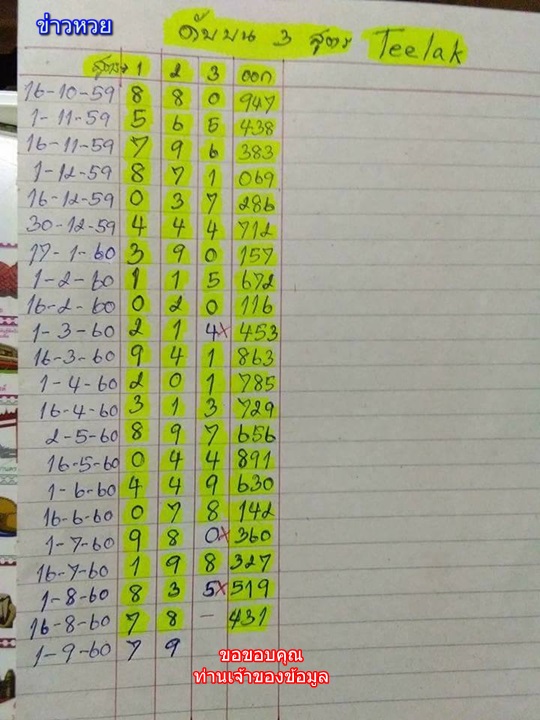 ข่าวหวย
ดับบน 3 สูตร Teelak
สูตร 1 2 3 ออก
16-10-59 8 8 0 947
1-11-59 5 6 5 438
16-11-59 7 9 6 383
1-12-59 8 7 1 069
16-12-59 0 3 7 286
30-12-59 4 4 4 712
17-1-60 3 9 0 157
1-2-60 1 1 5 672
16-2-60 0 2 0 116
1-3-60 2 1 4x 453
16-3-60 9 4 1 863
1-4-60 2 0 1 785
16-4-60 3 1 3 729
2-5-60 8 9 7 656
16-5-60 0 4 4 891
1-6-60 4 4 9 630
16-6-60 0 7 8 142
1-7-60 9 8 0x 360
16-7-60 1 9 8 327
1-8-60 8 3 5x 519
16-8-60 7 8 - 431
1-9-60 7 9
ขอขอบคุณ
ท่านเจ้าของข้อมูล